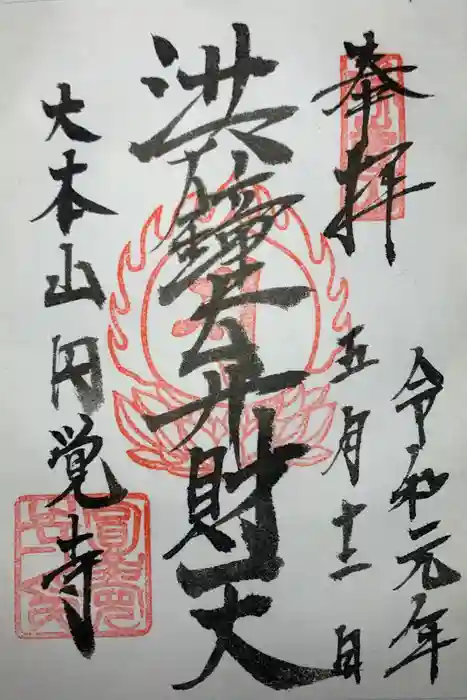 奉拝
令和元年
五月十二日
洪鐘弁財天
大本山円覚寺